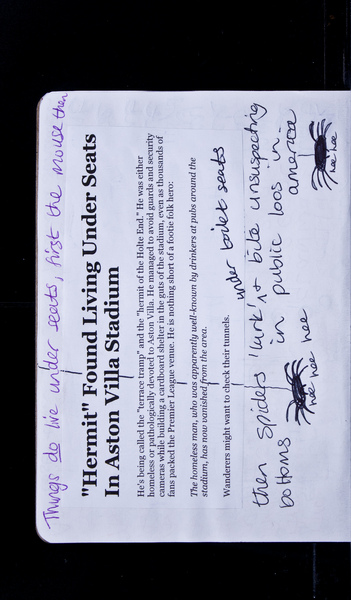 Things do live under seats, first the mouse then
"Hermit" Found Living Under Seats
In Aston Villa Stadium
He's being called the "terrace tramp" and the "hermit of the Holte End." He was either
homeless or pathologically devoted to Aston Villa. He managed to avoid guards and security
cameras while building a cardboard shelter in the guts of the stadium, even as thousands of
fans packed the Premier League venue. He is nothing short of a footie folk hero:
The homeless man, who was apparently well-known by drinkers at pubs around the
stadium, has now vanished from the area.
Wanderers might want to check their tunnels.
under toilet seats
then spiders 'lurk' + bite unsuspecting
bottoms in public loos in
america
hee hee hee
hee hee